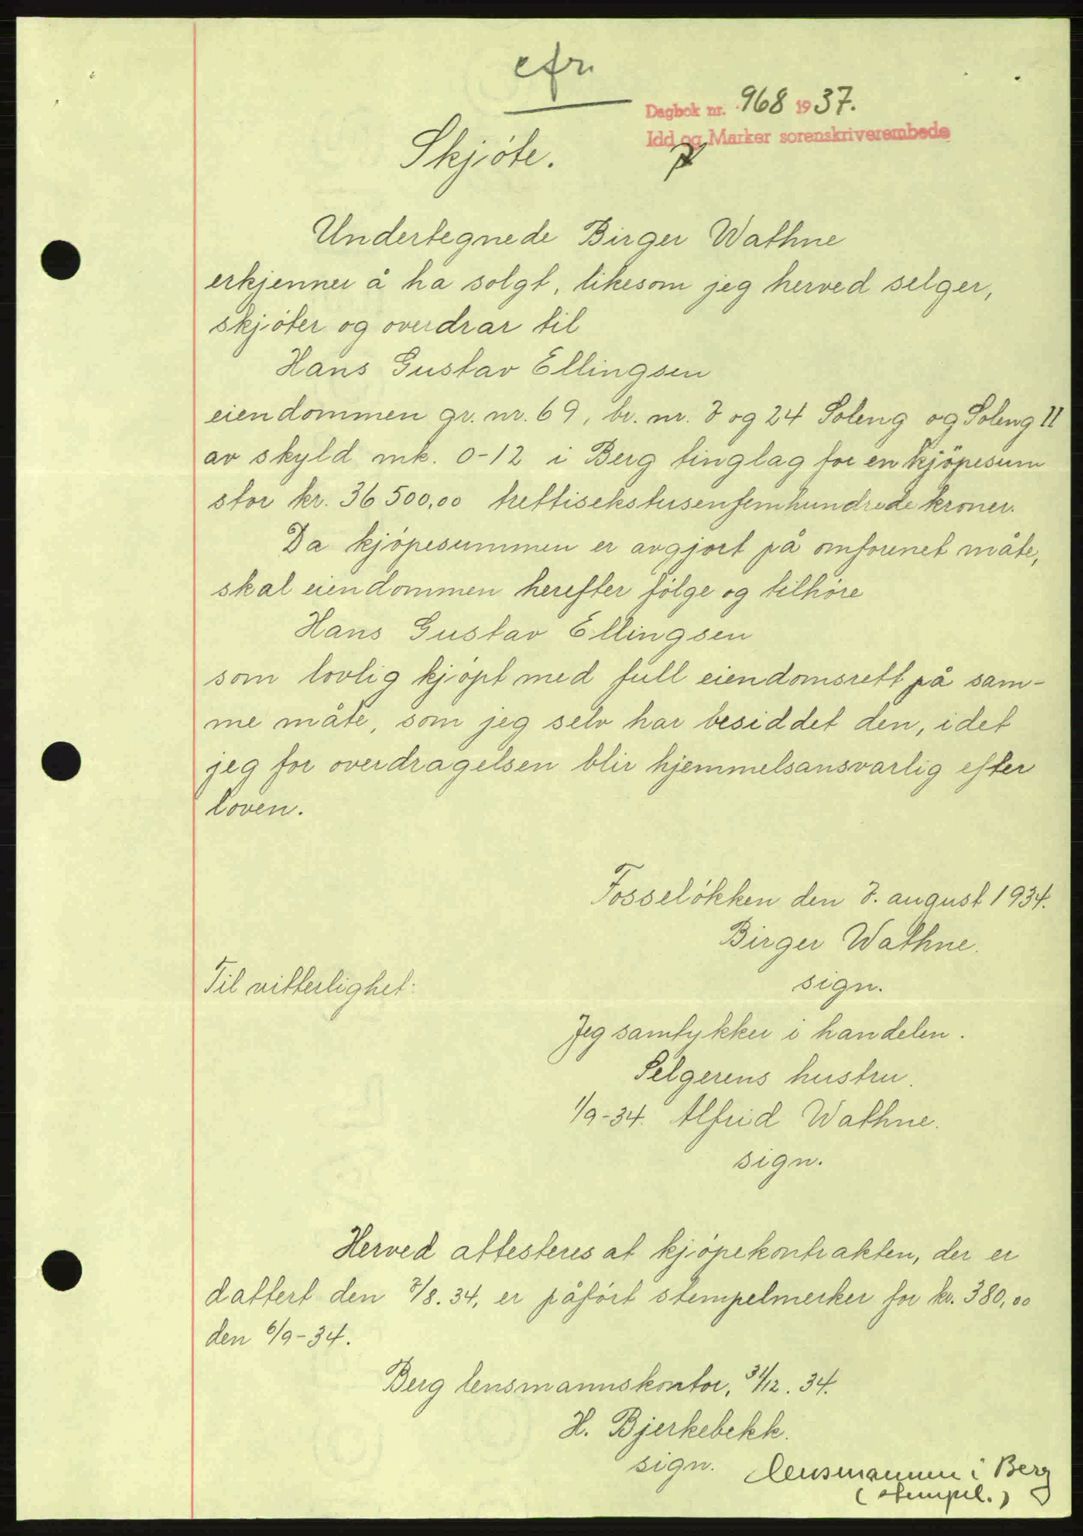 cfr.
Dagbok nr. 968 1937.
Idd og Marker sorenskriverembede
Skjöte.
Undertegnede Birger Wathne
erkjenner å ha solgt, likesom jeg herved selger,
skjöter og overdrar til
Hans Gustav Ellingsen
eiendommen gr. nr. 69, br. nr. 7 og 24 Soleng og Soleng II
av skyld mk. 0-12 i Berg tinglag for en kjöpesum
stor kr. 36500,00 trettisekstusenfemhundrede kroner.
Da kjöpesummen er avgjort på omforenet måte,
skal eiendommen herefter fölge og tilhöre
Hans Gustav Ellingsen
som lovlig kjöpt med full eiendomsrett på sam-
me måte, som jeg selv har besiddet den, idet
jeg for overdragelsen blir hjemmelsansvarlig efter
loven.
Fosselökken den 7. august 1934.
Birger Wathne.
Til vitterlighet:
sign.
Jeg samtykker i handelen.
Selgerens hustru.
1/9-34. Alfrid Wathne.
sign.
Herved attesteres at kjöpekontrakten, der er
dattert den 7/8.34, er påfört stempelmerker for kr. 380,00
den 6/9-34.
Berg lensmannskontor, 31/12. 34.
H. Bjerkebekk.
sign. lensmannen i Berg
(stempel.)